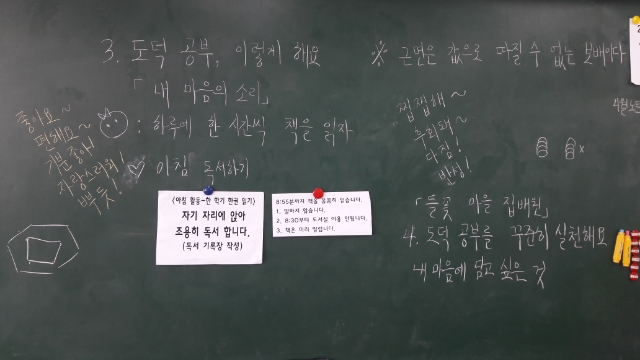 3. 도덕 공부, 이렇게 해요
「내 마음의 소리」
: 하루에 한 시간씩 책을 읽자
아침 독서하기
좋아요~
편해요~
기분좋아!
자랑스러워!
뿌듯!
<아침 활동-한 학기 한권 읽기>
자기 자리에 앉아
조용히 독서 합니다.
(독서 기록장 작성)
8:55분까지 책을 꼼꼼히 읽습니다.
1. 말하지 않습니다.
2. 8:30부터 도서실 이용 안됩니다.
3. 책은 미리 빌립니다.
※ 근면은 값으로 따질 수 없는 보배이다
찝찝해~
후회돼~
다짐!
반성!
「들꽃 마을 집배원」
4. 도덕 공부를 꾸준히 실천해요
내 마음에 담고 싶은 것